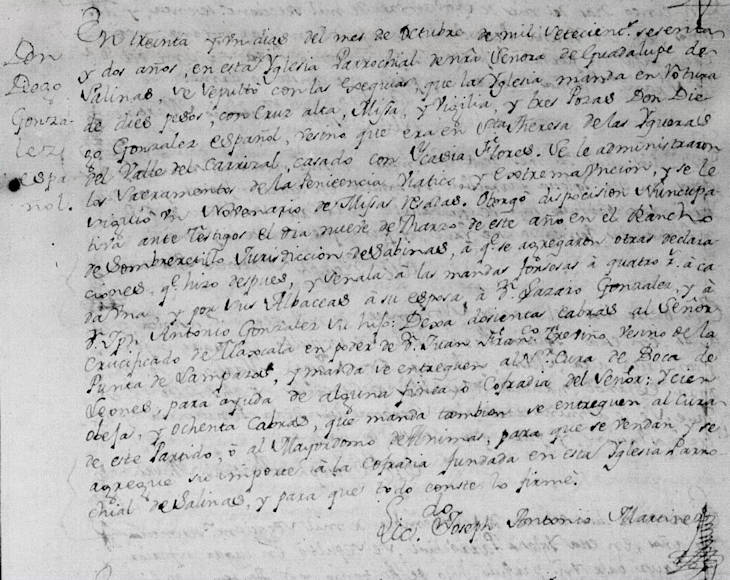 Don
Diego
Gonza-
lez,
espa-
ñol.
En treinta y un dias del mes de Octubre de mil setecien.s sesenta
y dos años, en esta Yglesia Parrochial de nrã Señora de Guadalupe de
Salinas, se sepultó con las Exequias, que la Yglesia manda en
de dies pesos con Cruz alta, Misa, y Vigilia, y tres Pozas Don Die-
go Gonzalez español, vesino que era en Sta. Theresa de las Yguanas
del Valle del Carrizal, casado con Ycasia Flores. Se le administraron
los Sacramentos de la Penicencia, Viatico, y Extrema Uncion, y se le
un Novenario de Misas resadas. Otorgò disposision Nuncupa-
tiva ante Testigos el dia nueve de Marzo de este año en el Rancho
de Sombreretillo Jurisdiccion de Sabinas, à q.e se agregaron otras declara-
ciones, q.e hizo despues, y señala à las mandas forsosas à quatro r.s à ca-
da una, y por sus Albaceas à su esposa, à D.n Lazaro Gonzalez, y à
D.n Jph. Antonio Gonzalez su hijo: Dexa dosientas cabras al Señor
Crucificado de Tlaxcala en poder de D.n Juan Fran.co Treviño, vesino de la
Punta de Lampazos, y manda se entreguen al S.r Cura de Boca de
Leones, para ayuda de alguna finca ò Cofradia del Señor; Ycien
obejas, y ochenta Cabras, que manda tambien se entreguen al Cura
de este Partido, ò al Mayordomo de Animas, para que se vendan, y se
agregue su importe à la Cofradia fundada en esta Yglesia Parro-
chial de Salinas, y para que todo conste lo firmè.
Lic.do Joseph Antonio Martinez